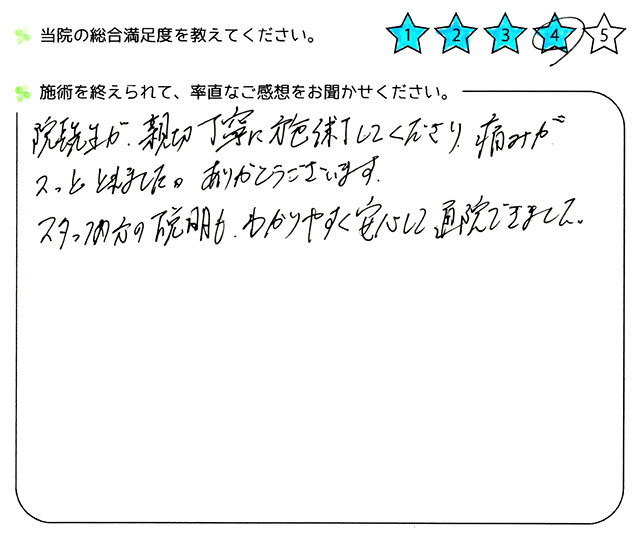 当院の総合満足度を教えてください。 1 2 3 4 5
施術を終えられて、率直なご感想をお聞かせください。
院長先生が、親切丁寧に施術してくださり、痛みが
スッととれました。ありがとうございます。
スタッフの方の説明も、わかりやすく安心して通院できました。